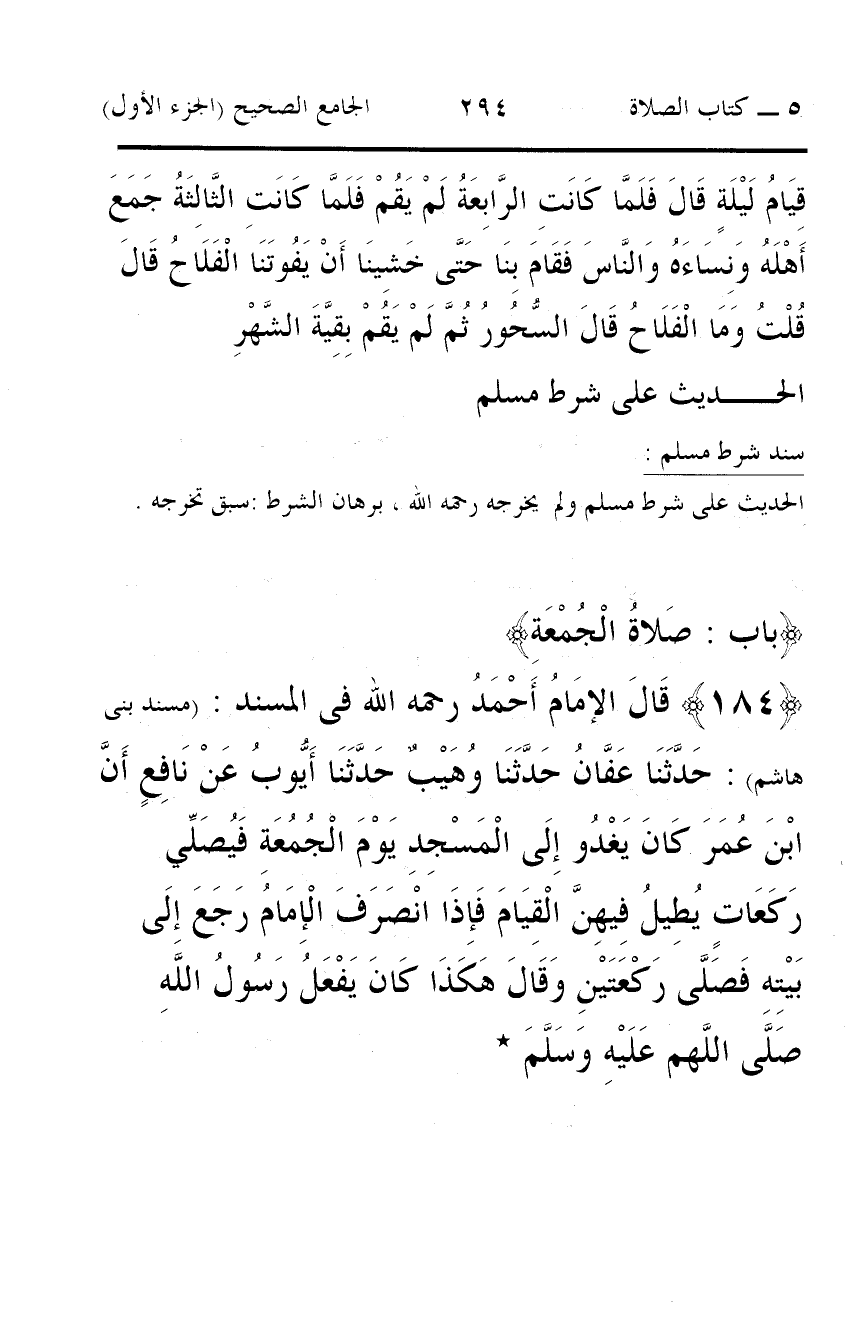 ٥ ــ كتاب الصلاة ٢٩٤ الجامع الصحيح (الجزء الأول)
قِيَامُ لَيْلَةٍ قَالَ فَلَمَّا كَانَتِ الرَّابِعَةُ لَمْ يَقُمْ فَلَمَّا كَانَتِ الثَّالِثَةُ جَمَعَ
أَهْلَهُ وَنِسَاءَهُ وَالنَّاسَ فَقَامَ بِنَا حَتَّى خَشِينَا أَنْ يَفُوتَنَا الْفَلَاحُ قَالَ
قُلْتُ وَمَا الْفَلَاحُ قَالَ السُّحُورُ ثُمَّ لَمْ يَقُمْ بِقِيَّةَ الشَّهْرِ
الحـــــديث على شرط مسلم
سند شرط مسلم :
الحديث على شرط مسلم ولم يخرجه رحمه الله ، برهان الشرط :سبق تخرجه .
﴿باب : صَلَاةُ الْجُمْعَةِ﴾
﴿١٨٤﴾ قَالَ الإِمَامُ أَحْمَدُ رحمه الله فى المسند : (مسند بنى
هاشم) : حَدَّثَنَا عَفَّانُ حَدَّثَنَا وُهَيْبٌ حَدَّثَنَا أَيُّوبُ عَنْ نَافِعٍ أَنَّ
ابْنَ عُمَرَ كَانَ يَغْدُو إِلَى الْمَسْجِدِ يَوْمَ الْجُمُعَةِ فَيُصَلِّي
رَكَعَاتٍ يُطِيلُ فِيهِنَّ الْقِيَامَ فَإِذَا انْصَرَفَ الْإِمَامُ رَجَعَ إِلَى
بَيْتِهِ فَصَلَّى رَكْعَتَيْنِ وَقَالَ هَكَذَا كَانَ يَفْعَلُ رَسُولُ اللَّهِ
صَلَّى اللَّهم عَلَيْهِ وَسَلَّمَ *